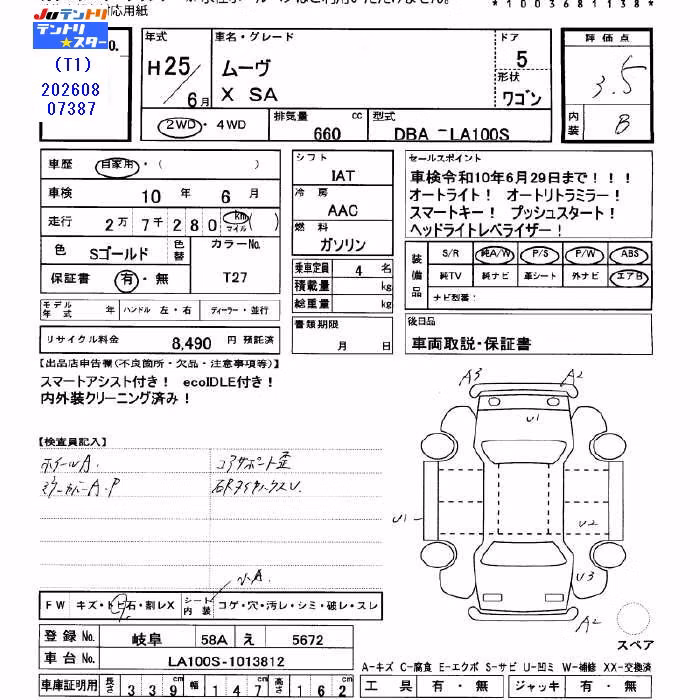 応用紙
JUテントリ
テントリ★スター
No.
(T1)
202608
07387
*10036811138*
年式 車名・グレード ドア 評価点
H25/6月 ムーヴ X SA 5 3.5
形状 ワゴン
内装 B
2WD・4WD 排気量 660 cc 型式 DBA-LA100S
車歴 自家用・( )
車検 10年 6月
走行 2万7千280 km マイル ( )
色 Sゴールド 色替 カラーNo. T27
保証書 有・無
モデル年式 年 ハンドル 左・右 ディーラー・並行
リサイクル料金 8,490 円 預託済
シフト
IAT
冷房
AAC
燃料
ガソリン
乗車定員 4 名
積載量 kg
総重量 kg
書類期限
月 日
セールスポイント
車検令和10年6月29日まで！！！
オートライト！ オートリトラミラー！
スマートキー！ プッシュスタート！
ヘッドライトレベライザー！
装備品 S/R 純A/W P/S P/W ABS
純TV 純ナビ 革シート 外ナビ エアB
ナビ型番：
後日品
車両取説・保証書
【出品店申告欄(不良箇所・欠品・注意事項等)】
スマートアシスト付き！ ecoIDLE付き！
内外装クリーニング済み！
【検査員記入】
ホイールA. コアサポート歪
A.P
A3 A2
U1
U1 U2
U3
A2
スペア
FW キズ・トビ石・割レX シート内装 コゲ・穴・汚レ・シミ・破レ・スレ
登録No. 岐阜 58A え 5672
車台No. LA100S-1013812
車庫証明用 長さ 339cm 幅 147cm 高さ 162cm
A-キズ C-腐食 E-エクボ S-サビ U-凹ミ W-補修 XX-交換済
工具 有・無 ジャッキ 有・無